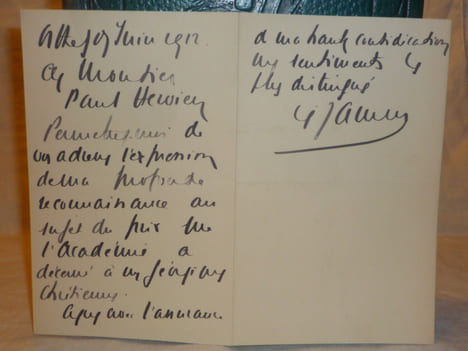 Juin 1912.
Monsieur
Paul Hervieu
Permettez moi de
vous adresser l'expression
de ma profonde
reconnaissance au
sujet du prix que
l'Académie a
décerné à mes géorgiques
chrétiennes.
Agréez avec l'assurance
de ma haute considération
mes sentiments les
plus distingués
Jammes